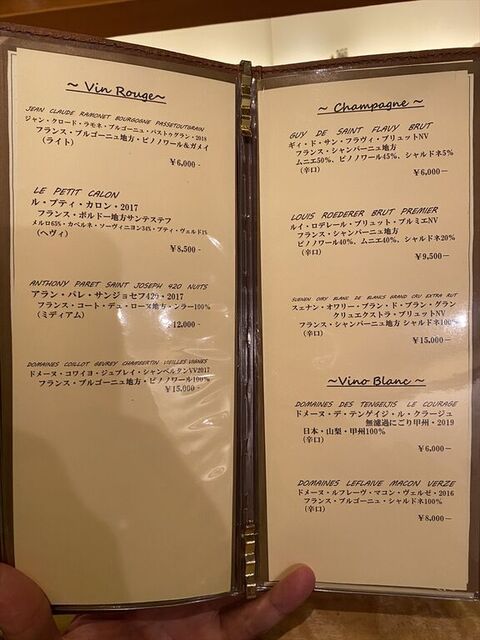 ~ Vin Rouge ~
JEAN CLAUDE RAMONET BOURGOGNE PASSETOUTGRAIN
ジャン・クロード・ラモネ・ブルゴーニュ・パストゥグラン・2018
フランス・ブルゴーニュ地方・ピノノワール&ガメイ
(ライト)
¥6,000-
LE PETIT CALON
ル・プティ・カロン・2017
フランス・ボルドー地方サンテステフ
メルロ65%・カベルネ・ソーヴィニヨン34%・プティ・ヴェルド1%
(ヘヴィ)
¥8,500-
ANTHONY PARET SAINT JOSEPH 420 NUITS
アラン・パレ・サンジョセフ420・2017
フランス・コート・デュ・ローヌ地方・シラー100%
(ミディアム)
¥12,000-
DOMAINES COILLOT GEVREY CHAMBERTIN VIEILLES VIGNES
ドメーヌ・コワイヨ・ジュブレイ・シャンベルタンVV2017
フランス・ブルゴーニュ地方・ピノノワール100%
¥15,000-
~ Champagne ~
GUY DE SAINT FLAVY BRUT
ギィ・ド・サン・フラヴィ・ブリュットNV
フランス・シャンパーニュ地方
ムニエ50%、ピノノワール45%、シャルドネ5%
(辛口)
¥6,000-
LOUIS ROEDERER BRUT PREMIER
ルイ・ロデレール・ブリュット・プルミエNV
フランス・シャンパーニュ地方
ピノノワール40%、ムニエ40%、シャルドネ20%
(辛口)
¥9,500-
SUENEN OIRY BLANC DE BLANCS GRAND CRU EXTRA RUT
スェナン・オワリー・ブラン・ド・ブラン・グラン
クリュエクストラ・ブリュットNV
フランス・シャンパーニュ地方 シャルドネ100%
(辛口)
¥15,000-
~Vino Blanc~
DOMAINES DES TENGEIJIS LE COURAGE
ドメーヌ・デ・テンゲイジ・ル・クラージュ
無濾過にごり甲州・2019
日本・山梨・甲州100%
(辛口)
¥6,000-
DOMAINES LEFLAIVE MACON VERZE
ドメーヌ・ルフレーヴ・マコン・ヴェルゼ・2016
フランス・ブルゴーニュ・シャルドネ100%
(辛口)
¥8,000-